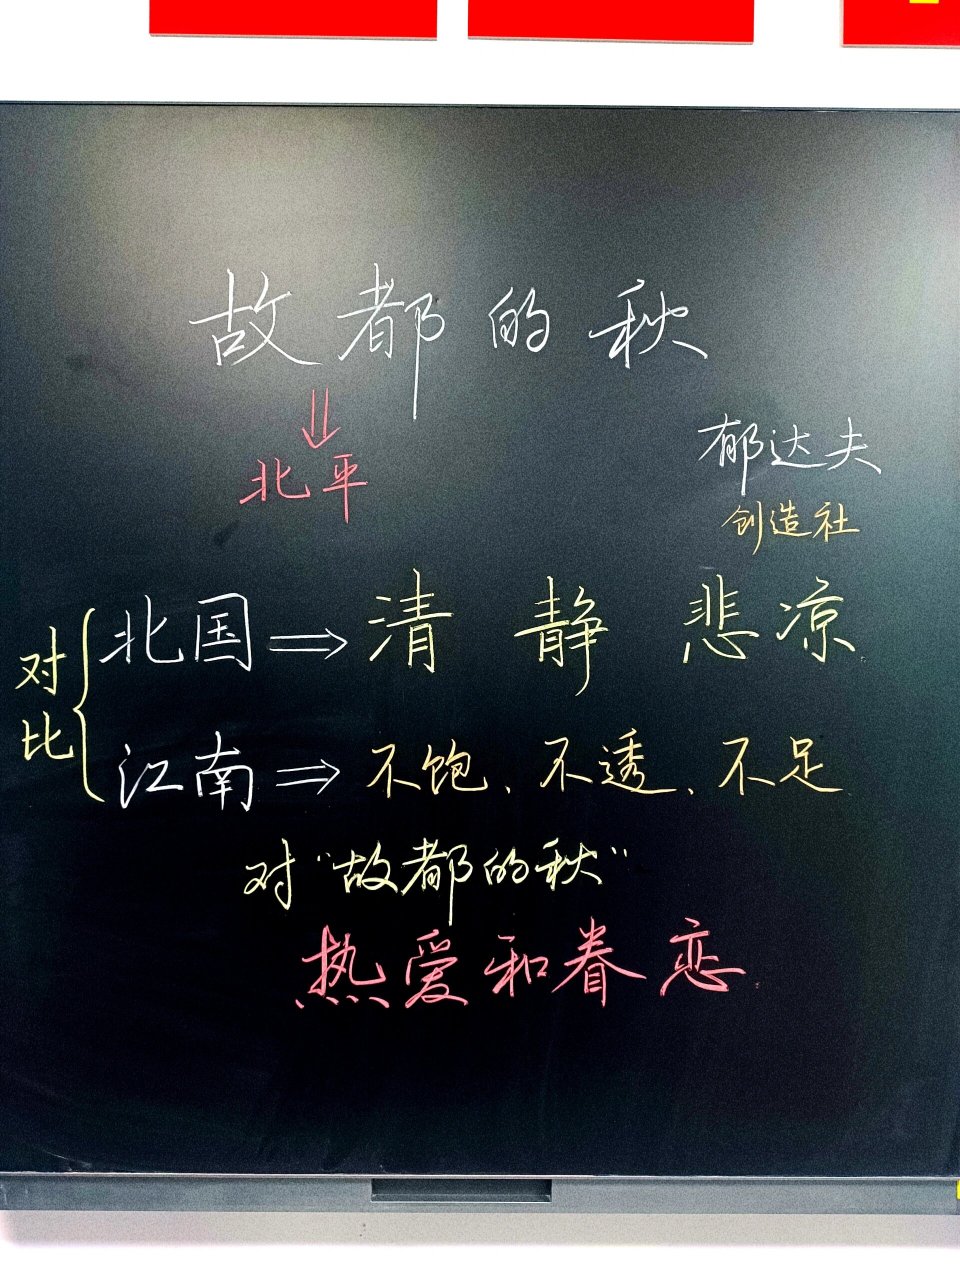 故都的秋
⇓
北平
郁达夫
创造社
对比 { 北国 ⇒ 清 静 悲凉
江南 ⇒ 不饱、不透、不足
对“故都的秋”
热爱和眷恋